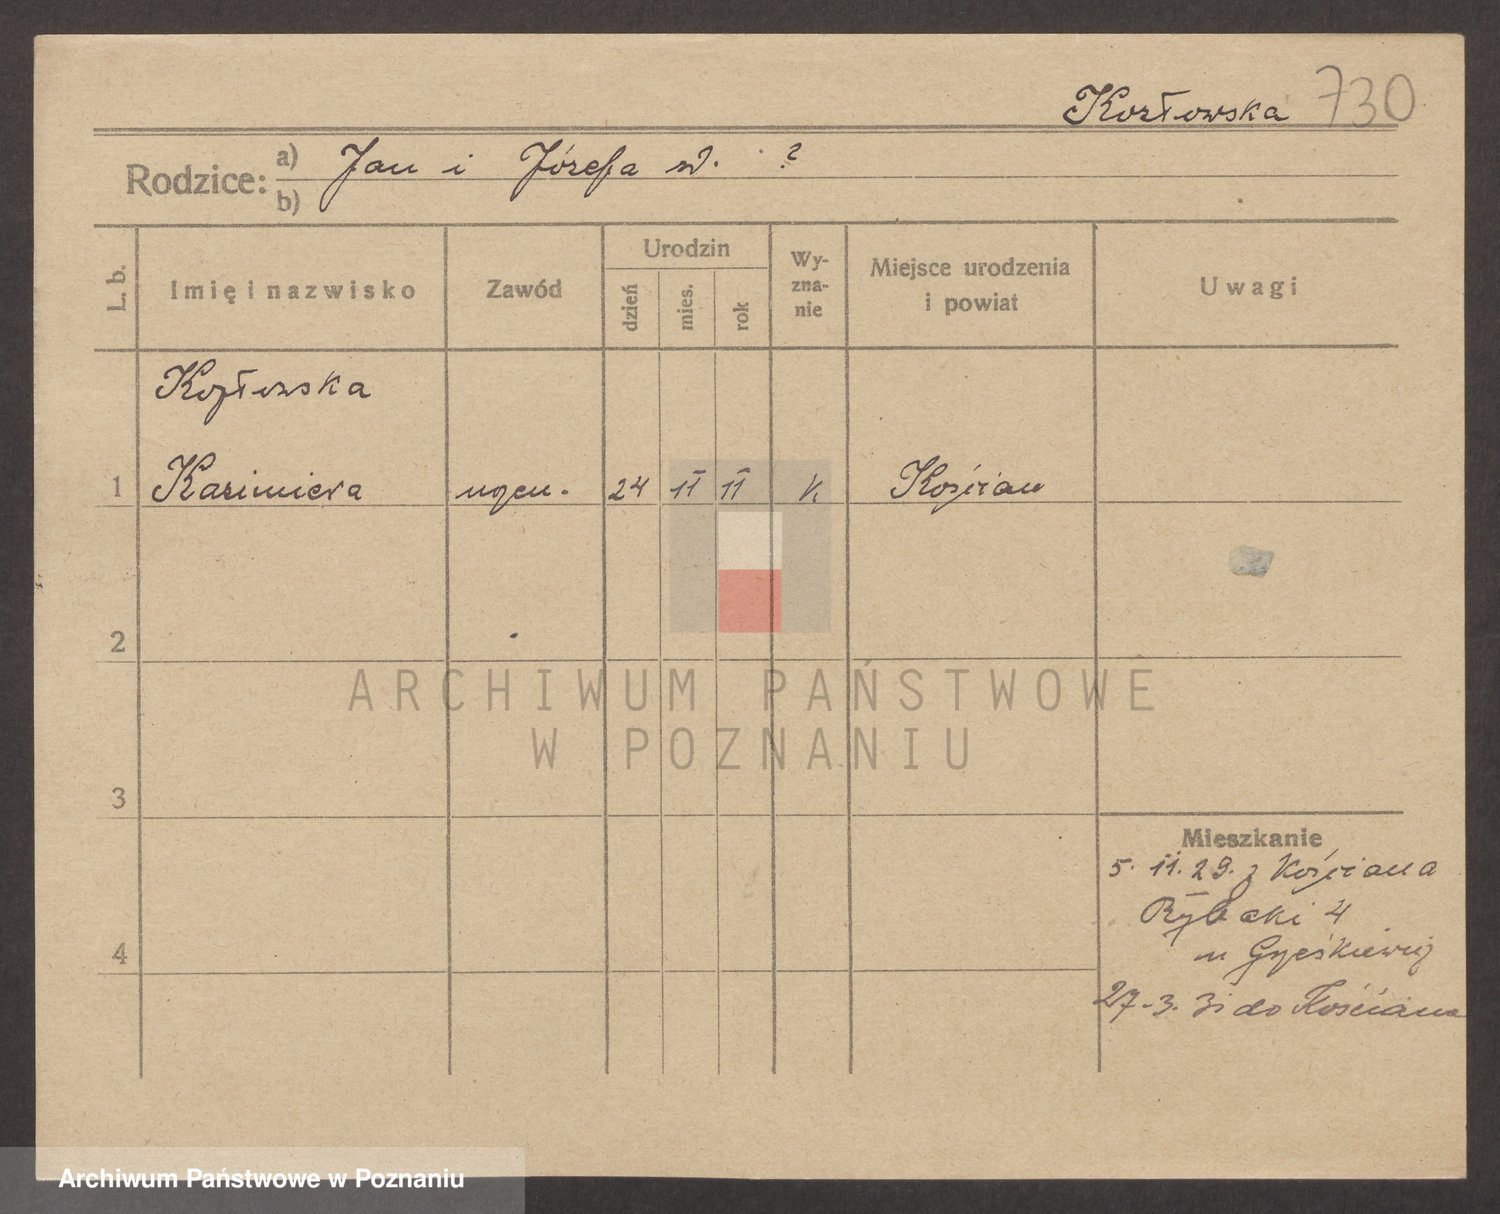 Kozłowska 730
Rodzice: a) Jan i Józefa d. ?
b)
L. b. Imię i nazwisko Zawód Urodzin dzień mies. rok Wyznanie Miejsce urodzenia i powiat Uwagi
Kozłowska
1 Kazimiera 24 11 11 k Kościan
2
ARCHIWUM PAŃSTWOWE
W POZNANIU
3
Mieszkanie
5. 11. 29. z Kościana
Rybacki 4
4
27-3. 31 do Kościana
Archiwum Państwowe w Poznaniu